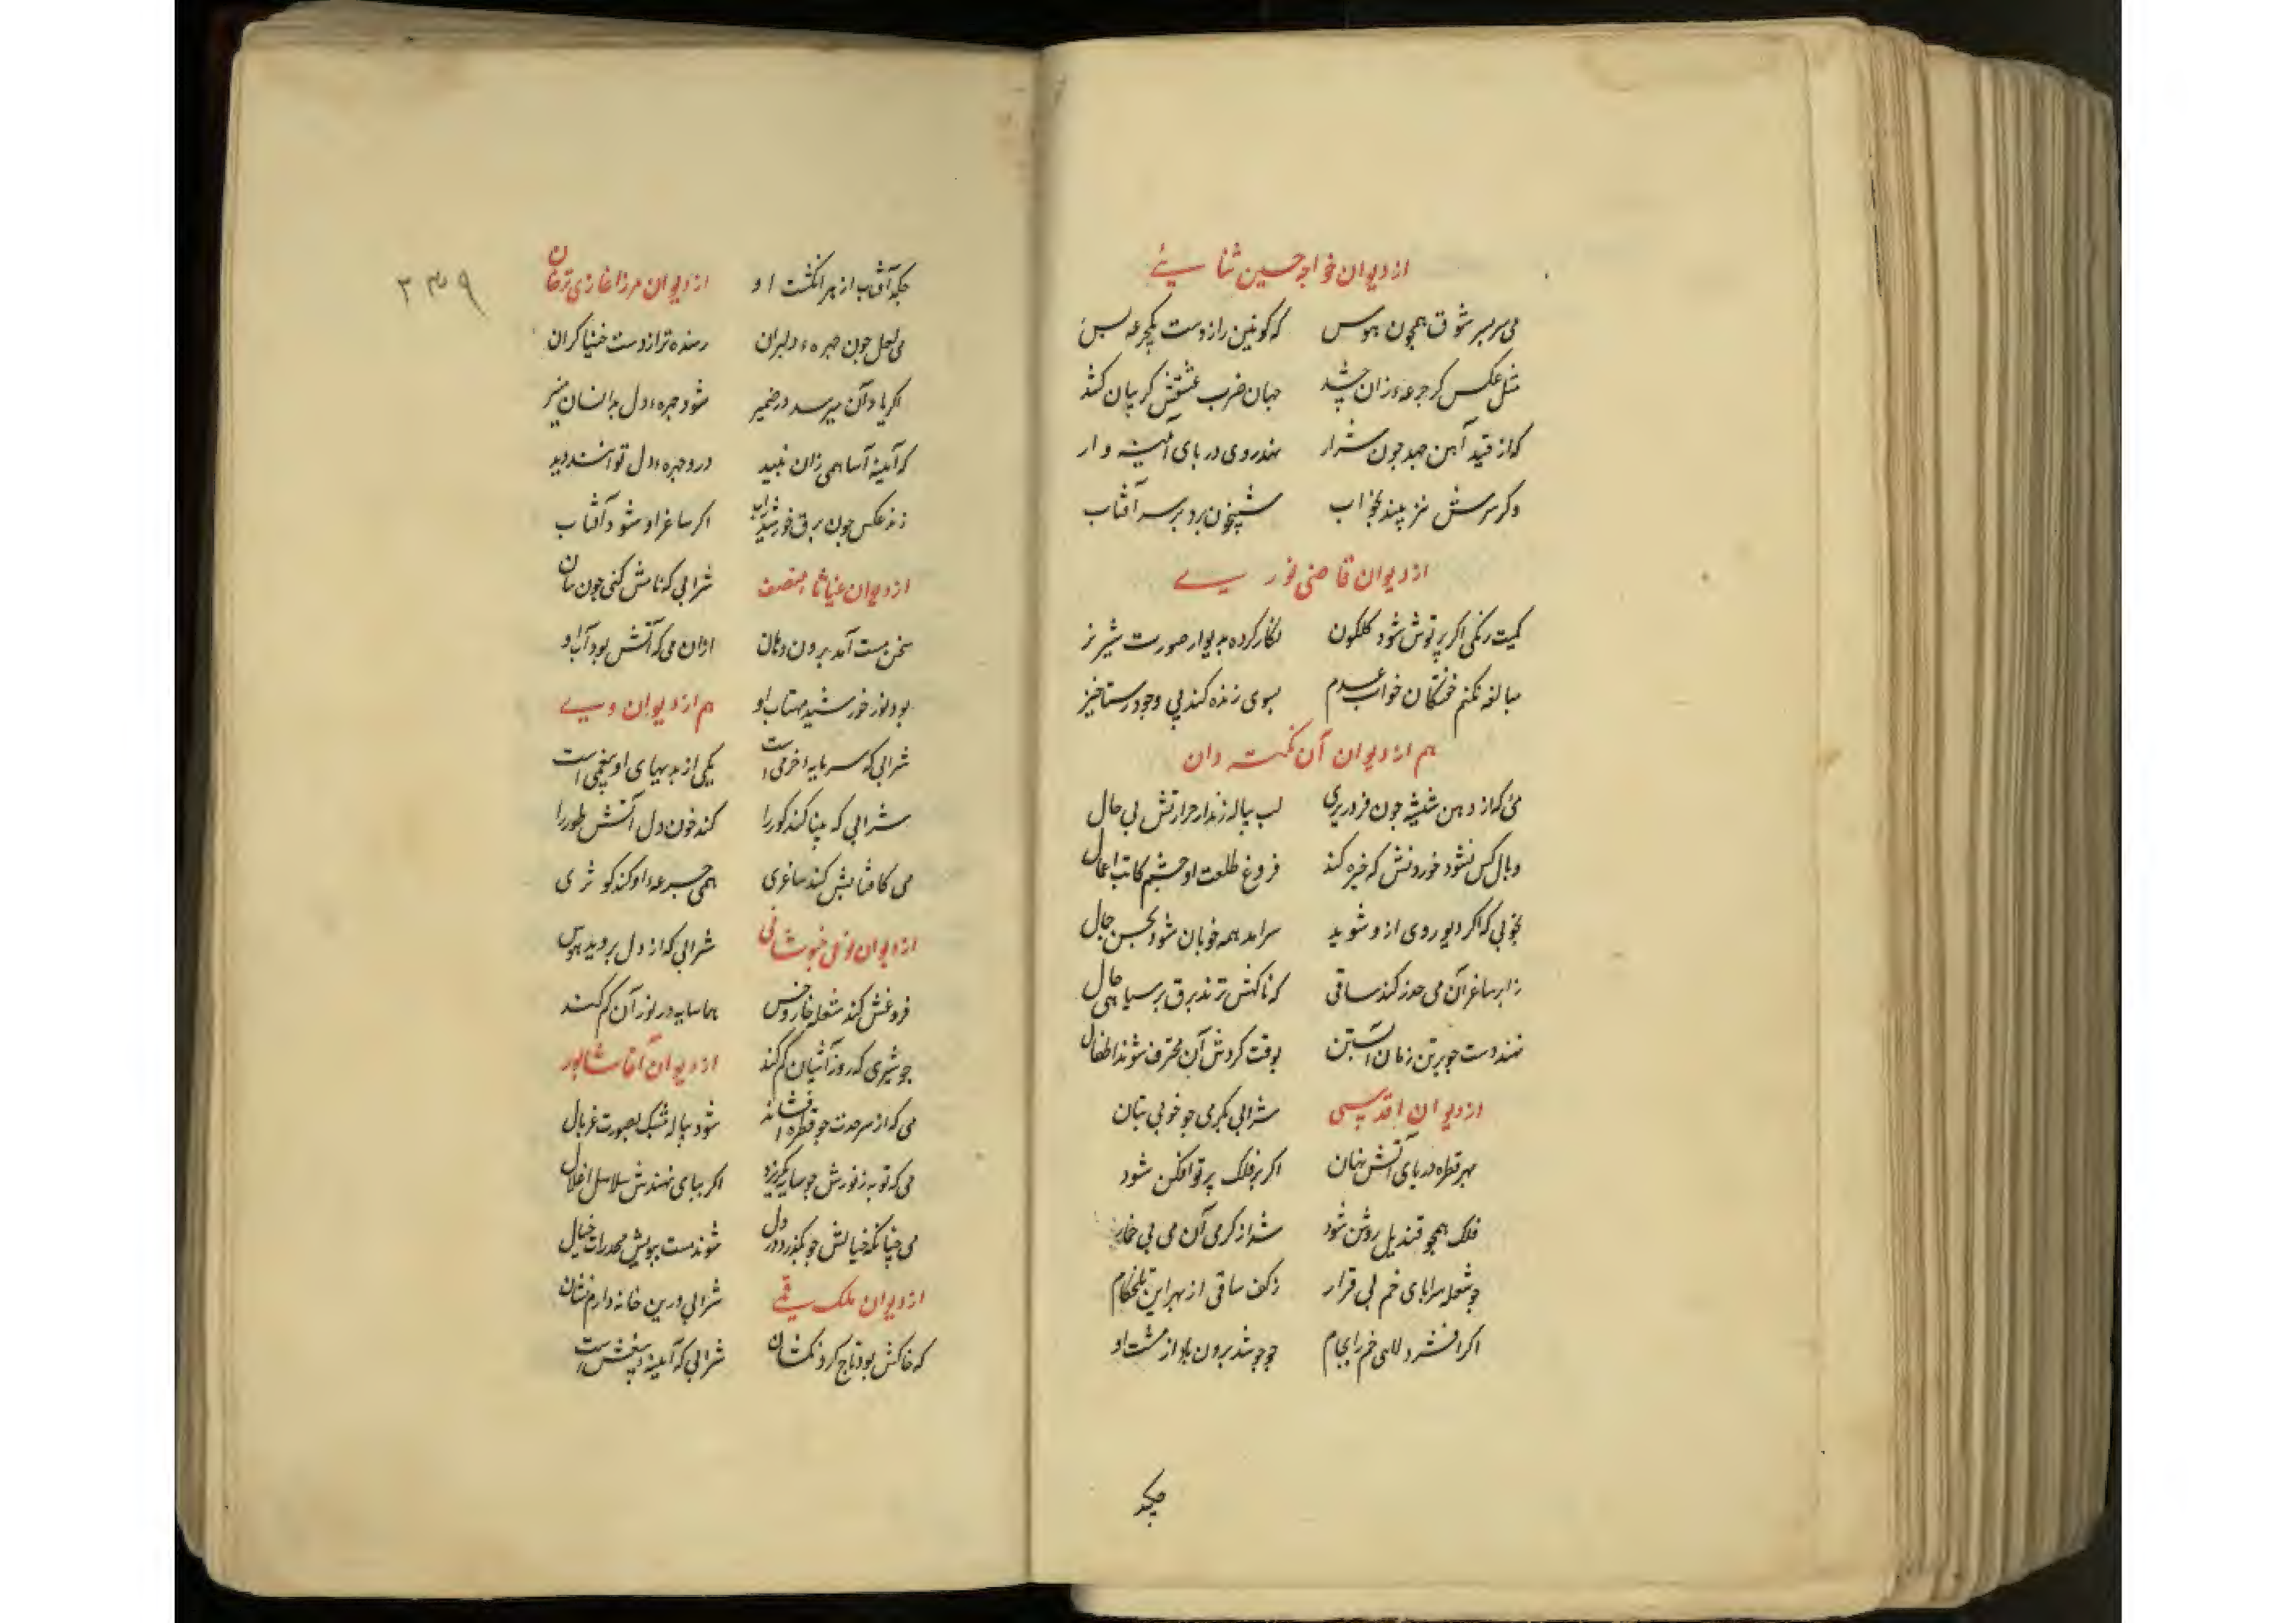 از دیوان خواجه حسین ثنایئے
می سربسر شوق همچون هوس که کونین را زوست یکجرعه بس
مثل عکس کر جرعهٔ زان چشد جهان ضرب عشقش کریبان کشد
که از قید آهن جهد چون شرار نهد روی در پای آئینه وار
وکر سرش نیز بیند بخواب شبیخون برد بر سر آفتاب
از دیوان قاضی نوریے
کمیت رنکی اکر پرتوش شود کلکون نکار کرده بدیوار صورت شیرنز
مبالغه نکنم خفتکان خواب عدم ببوی زنده کند بی وجود رستاخیز
هم از دیوان آن نکته دان
مئ که از دهن شیشه چون فرو ریزی لب پیاله زند از حرارتش بی حال
وبال کس نشود خوردنش که خیره کند فروغ طلعت او چشم کاتب اعمال
بخوبی که اکر دیو روی ازو شوید سرامد همه خوبان شود بحسن جمال
ز ابر ساغر آن می حذر کند ساقی که ناکهش نزند برق بر سیاهی خال
نهند دست چو بر تن زمان آبستن بوقت کردش آن محترف شوند اطفال
از دیوان اقدسی شرابی بکرمی چو خوبی بتان
بهر قطره دریای آتش نهان اکر بر فلک پرتوافکن شود
فلک همچو قندیل روشن شود شد از کرمی آن می بی خمار
چو شعله سراپای خم بی قرار زکف ساقی از بهر این تلخکام
اکر افشرد لای خم را بجام چو جوشد برون باد از مشت او
چکد
چکد آفتاب از هر انکشت او از دیوان مرزا غازی ترخان
می لعل چون چهرهٔ دلبران رسنده تر از دست خنیاکران
اکر یاد آن میرسد در ضمیر شود چهرهٔ دل بدانسان منیر
که آیینه آسا همی زان نبید درو چهرهٔ دل توانند دید
زند عکس چون برق خورشید شراب اکر ساغر او شود آفتاب
از دیوان غیاثا منصف شرابی که نامش کنی چون بیان
سخن مست آمد برون از دهان ازان می که آتش بود آب او
بود نور خورشید مهتاب او هم از دیوان ویے
شرابی که سرمایهٔ خرمی است یکی از بدیهای او بیغمی است
شرابی که بینا کند کور را کند خون دل آتش طور را
می کافتابش کند ساغری همی جرعهٔ او کند کوثری
از دیوان نوعی خبوشانی شرابی که از دل برو ید هوس
فروغش کند شعله خار و خس هما سایه در نور آن کم کند
چو شیری که روز آشیان کم کند از دیوان آقا شاپور
می که از سر حدت چو قطره افشاند شود پیاله مشبک بصورت غربال
می که توبه ز نورش چو سایه بکریزد اکر بپای نهندش سلاسل اغلال
می چنانکه خیالش چو بکذرد در دل شوند مست ببویش مخدرات خیال
از دیوان ملک قمے شرابی درین خانه دارم نشان
که خاکش بود تاج کردنکشان شرابی که آیینهٔ بیغش است
۳۴۹